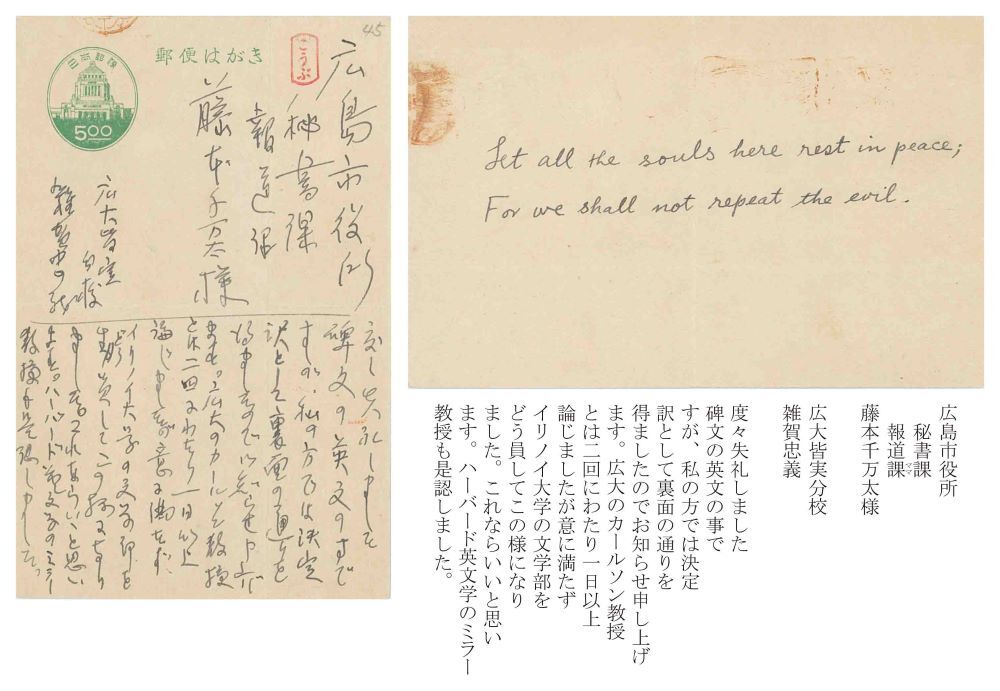 45
日本郵便
5.00
郵便はがき
こうぶ
広島市役所
秘書課
報道課
藤本千万太様
広大皆実
分校
雑賀忠義
度々失礼しました
碑文の英文の事で
すが、私の方では決定
訳として裏面の通りを
得ましたのでお知らせ申し上げ
ます。広大のカールソン教授
とは二回にわたり一日以上
論じましたが意に満たず
イリノイ大学の文学部を
どう員してこの様になり
ました。これならいいと思い
ます。ハーバード英文学のミラー
教授も是認しました。
Let all the souls here rest in peace;
For we shall not repeat the evil.
広島市役所
秘書課
報道課
ママ
藤本千万太様
広大皆実分校
雑賀忠義
度々失礼しました
碑文の英文の事で
すが、私の方では決定
訳として裏面の通りを
得ましたのでお知らせ申し上げ
ます。広大のカールソン教授
とは二回にわたり一日以上
論じましたが意に満たず
イリノイ大学の文学部を
どう員してこの様になり
ました。これならいいと思い
ます。ハーバード英文学のミラー
教授も是認しました。